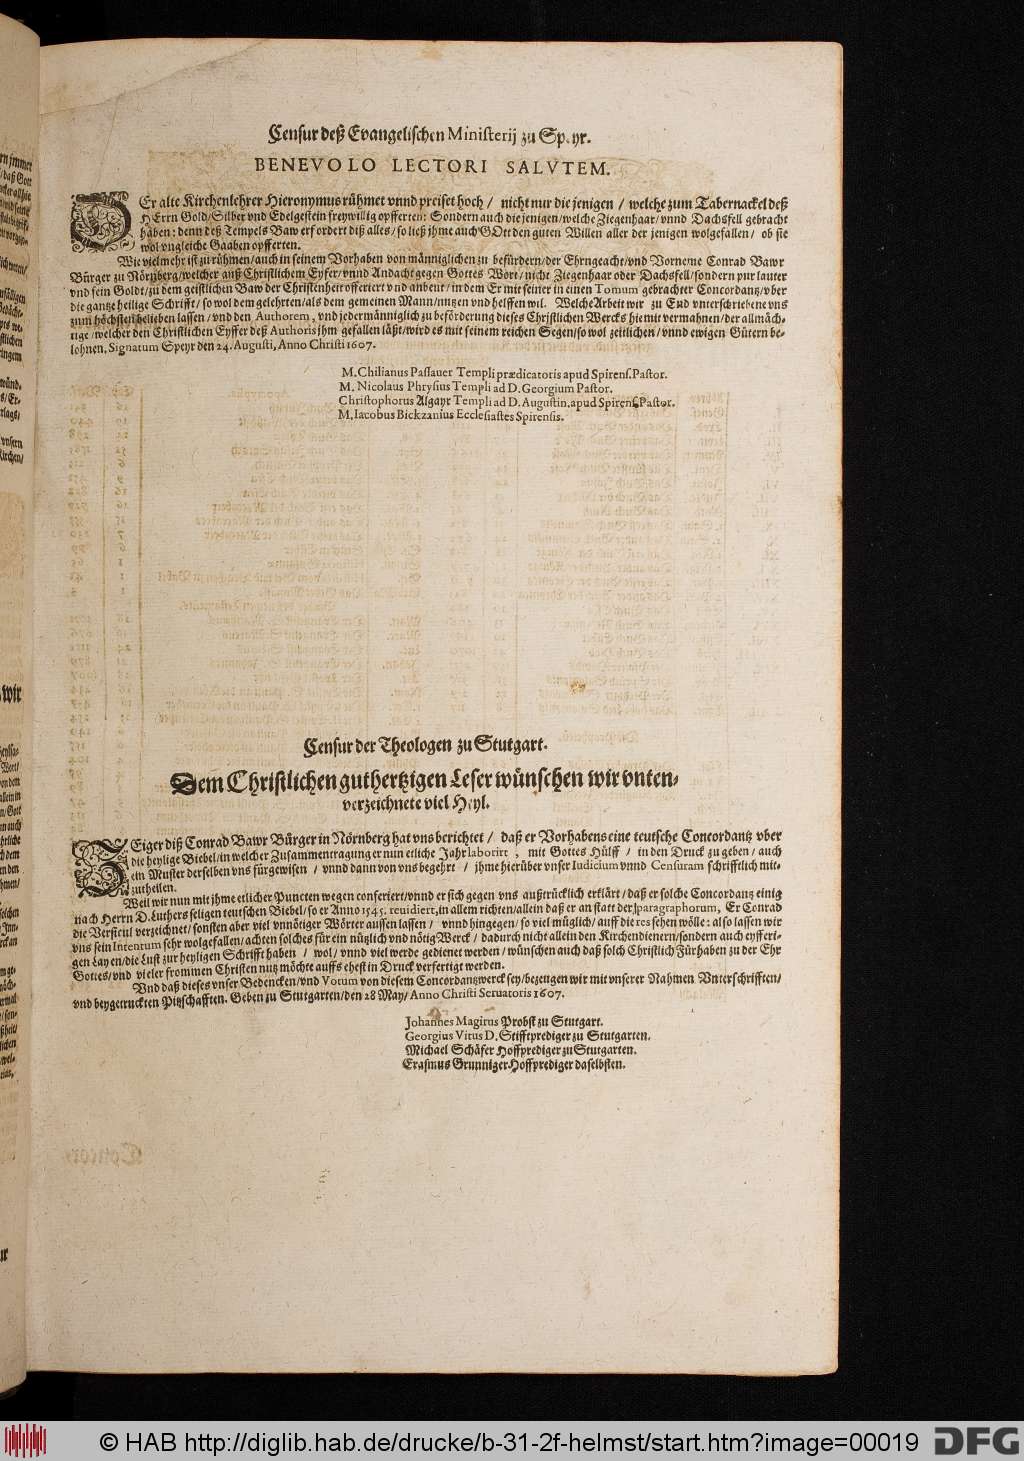 Censur deß Evangelischen Ministerij zu Speyr.
BENEVOLO LECTORI SALVTEM.
DEr alte Kirchenlehrer Hieronymus rühmet vnnd preiset hoch / nicht nur die jenigen / welche zum Tabernackel deß
HErrn Gold/Silber vnd Edelgestein freywillig opfferten: Sondern auch die jenigen/welche Ziegenhaar/vnnd Dachsfell gebracht
haben: denn deß Tempels Baw erfordert diß alles/so ließ jhme auch GOtt den guten Willen aller der jenigen wolgefallen/ ob sie
wol vngleiche Gaaben opfferten.
Wie viel mehr ist zu rühmen/auch in seinem Vorhaben von männiglichen zu befürdern/der Ehrngeacht/vnd Vorneme Conrad Bawr
Bürger zu Nörnberg/welcher auß Christlichem Eyfer/vnnd Andacht gegen Gottes Wort/nicht Ziegenhaar oder Dachsfell/sondern pur lauter
vnd fein Goldt/zu dem geistlichen Baw der Christenheit offeriert vnd anbeut/in dem Er mit seiner in einen Tomum gebrachter Concordantz/vber
die gantze heilige Schrifft/so wol dem gelehrten/als dem gemeinen Mann/nutzen vnd helffen wil. Welche Arbeit wir zu End vnterschriebene vns
zum höchsten belieben lassen/vnd den Authorem, vnd jedermänniglich zu beförderung dieses Christlichen Wercks hiemit vermahnen/der allmäch-
tige/welcher den Christlichen Eyffer deß Authoris jhm gefallen läßt/wird es mit seinem reichen Segen/so wol zeitlichen/vnnd ewigen Gütern be-
lohnen. Signatum Speyr den 24. Augusti, Anno Christi 1607.
M. Chilianus Passauer Templi prædicatoris apud Spirens. Pastor.
M. Nicolaus Phrysius Templi ad D. Georgium Pastor.
Christophorus Algayr Templi ad D. Augustin. apud Spirens. Pastor.
M. Iacobus Bickzanius Ecclesiastes Spirensis.
Censur der Theologen zu Stutgart.
Dem Christlichen guthertzigen Leser wünschen wir vnten-
verzeichnete viel Heyl.
ZEiger diß Conrad Bawr Bürger in Nörnberg hat vns berichtet/ daß er Vorhabens eine teutsche Concordantz vber
die heylige Biebel/in welcher Zusammentragung er nun etliche Jahr laborirt, mit Gottes Hülff / in den Druck zu geben / auch
ein Muster derselben vns fürgewisen / vnnd dann von vns begehrt / jhme hierüber vnser Iudicium vnnd Censuram schrifftlich mit-
zutheilen.
Weil wir nun mit jhme etlicher Puncten wegen conferiert/vnnd er sich gegen vns außtrücklich erklärt/daß er solche Concordantz einig
nach Herrn D. Luthers seligen teutschen Biebel/so er Anno 1545. reuidiert, in allem richten/allein daß er an statt der paragraphorum, Er Conrad
die Versicul verzeichnet/sonsten aber viel vnnötiger Wörter aussen lassen/ vnnd hingegen/so viel müglich/auff die res sehen wölle: also lassen wir
vns sein Intentum sehr wolgefallen/achten solches für ein nützlich vnd nötig Werck / dadurch nicht allein den Kirchendienern/sondern auch eyfferi-
gen Layen/die Lust zur heyligen Schrifft haben / wol/vnnd viel werde gedienet werden/wünschen auch daß solch Christlich Fürhaben zu der Ehr
Gottes/vnd vieler frommen Christen nutz möchte auffs ehest in Druck verfertigt werden.
Vnd daß dieses vnser Bedencken/vnd Votum von diesem Concordantzwerck sey/bezeugen wir mit vnserer Nahmen Vnterschrifften/
vnd beygetruckten Pitzschafften. Geben zu Stutgarten/den 28 May/Anno Christi Seruatoris 1607.
Johannes Magirus Probst zu Stutgart.
Georgius Vitus D. Stifftprediger zu Stutgarten.
Michael Schäfer Hoffprediger zu Stutgarten.
Erasmus Grunniger Hoffprediger daselbsten.
© HAB http://diglib.hab.de/drucke/b-31-2f-helmst/start.htm?image=00019
DFG